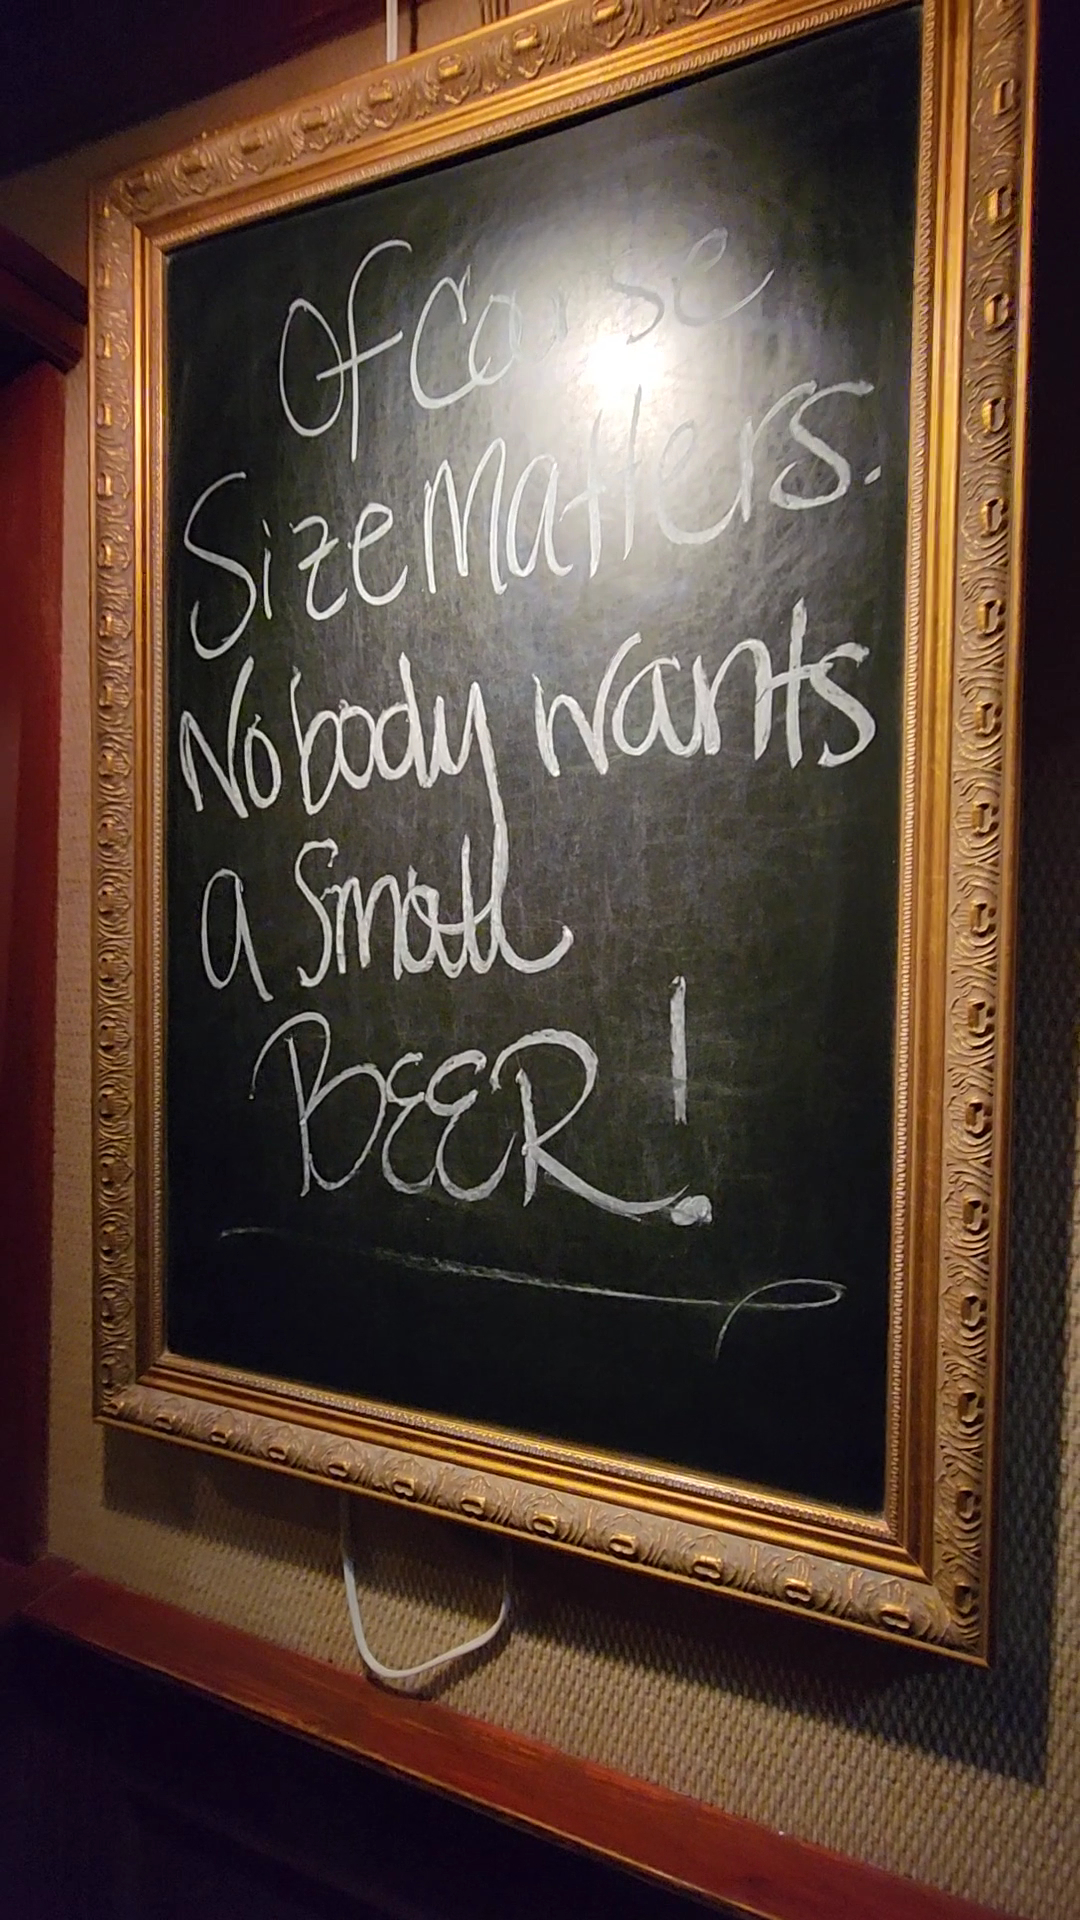 Of Course
Size Matters.
Nobody wants
a Small
BEER!